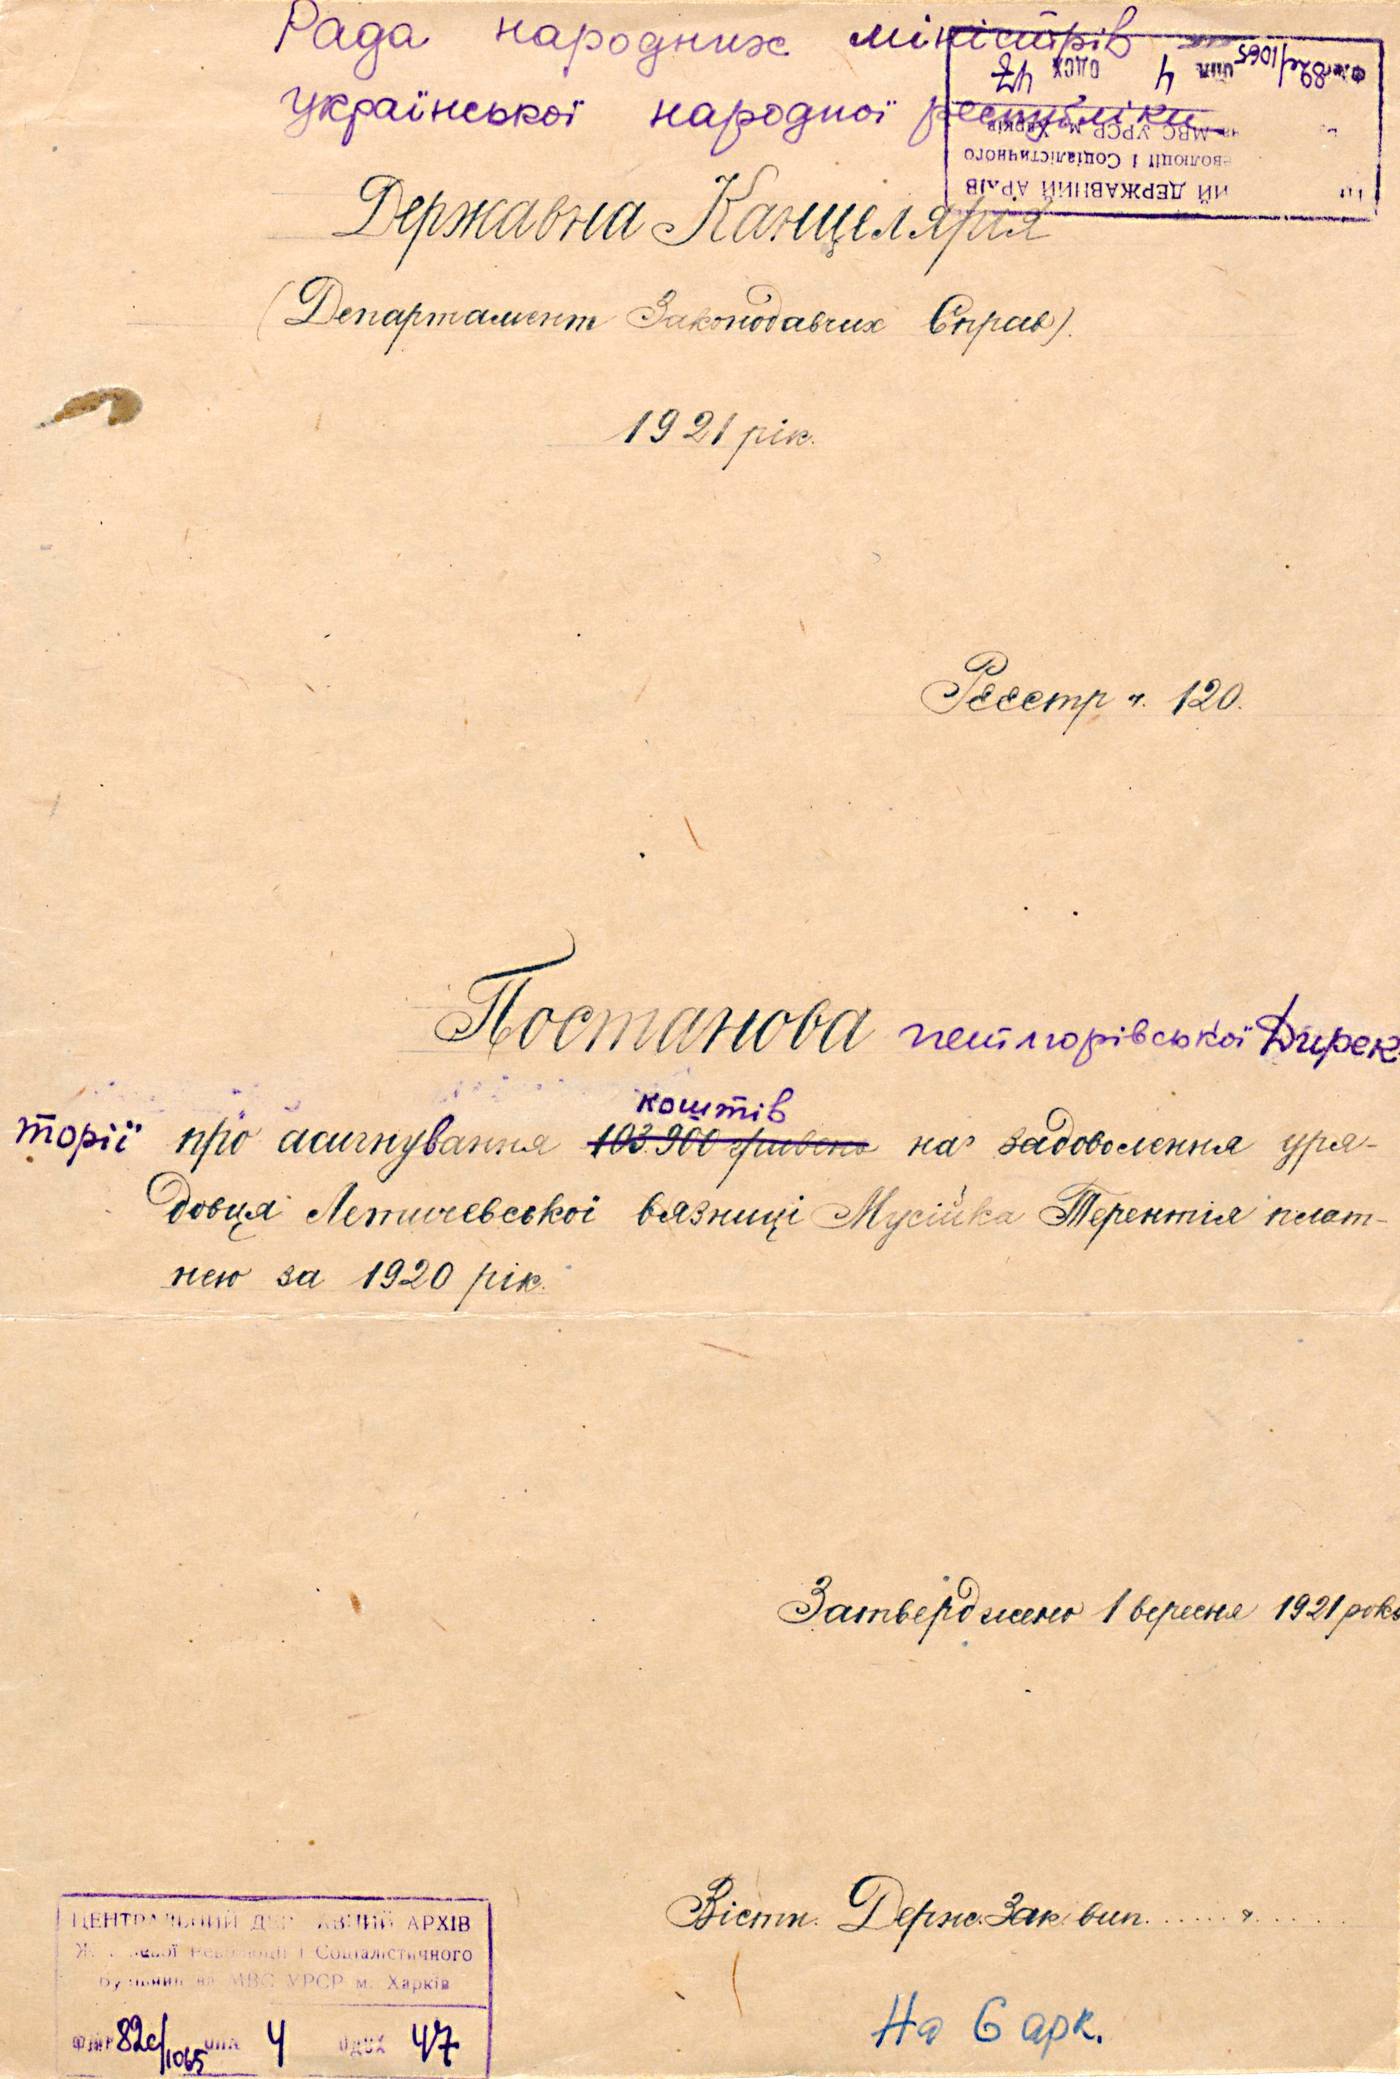 Рада народних міністрів
української народної республіки
Державна Канцелярія
(Департамент Законодавчих Справ).
1921 рік.
Реєстр ч. 120.
Постанова петлюрівської Дирек-
торії про асигнування 103.900 гривень коштів на задоволення уря-
довця Летичевської вязниці Мусійка Терентія плат-
нею за 1920 рік.
Затверджено 1 вересня 1921 року
Вістн. Держ. Зак. вип. ...... ч. ......
На 6 арк.
ЦЕНТРАЛЬНИЙ ДЕРЖАВНИЙ АРХІВ
Жовтневої Революції і Соціалістичного
Будівництва МВС УРСР м. Харків
ФОНД 82с/1065 ОПИС 4 ОДЗХ 47
ИЙ ДЕРЖАВНИЙ АРХІВ
еволюції і Соціалістичного
МВС УРСР м. Харків
82с/1065 4 ОДСХ 47